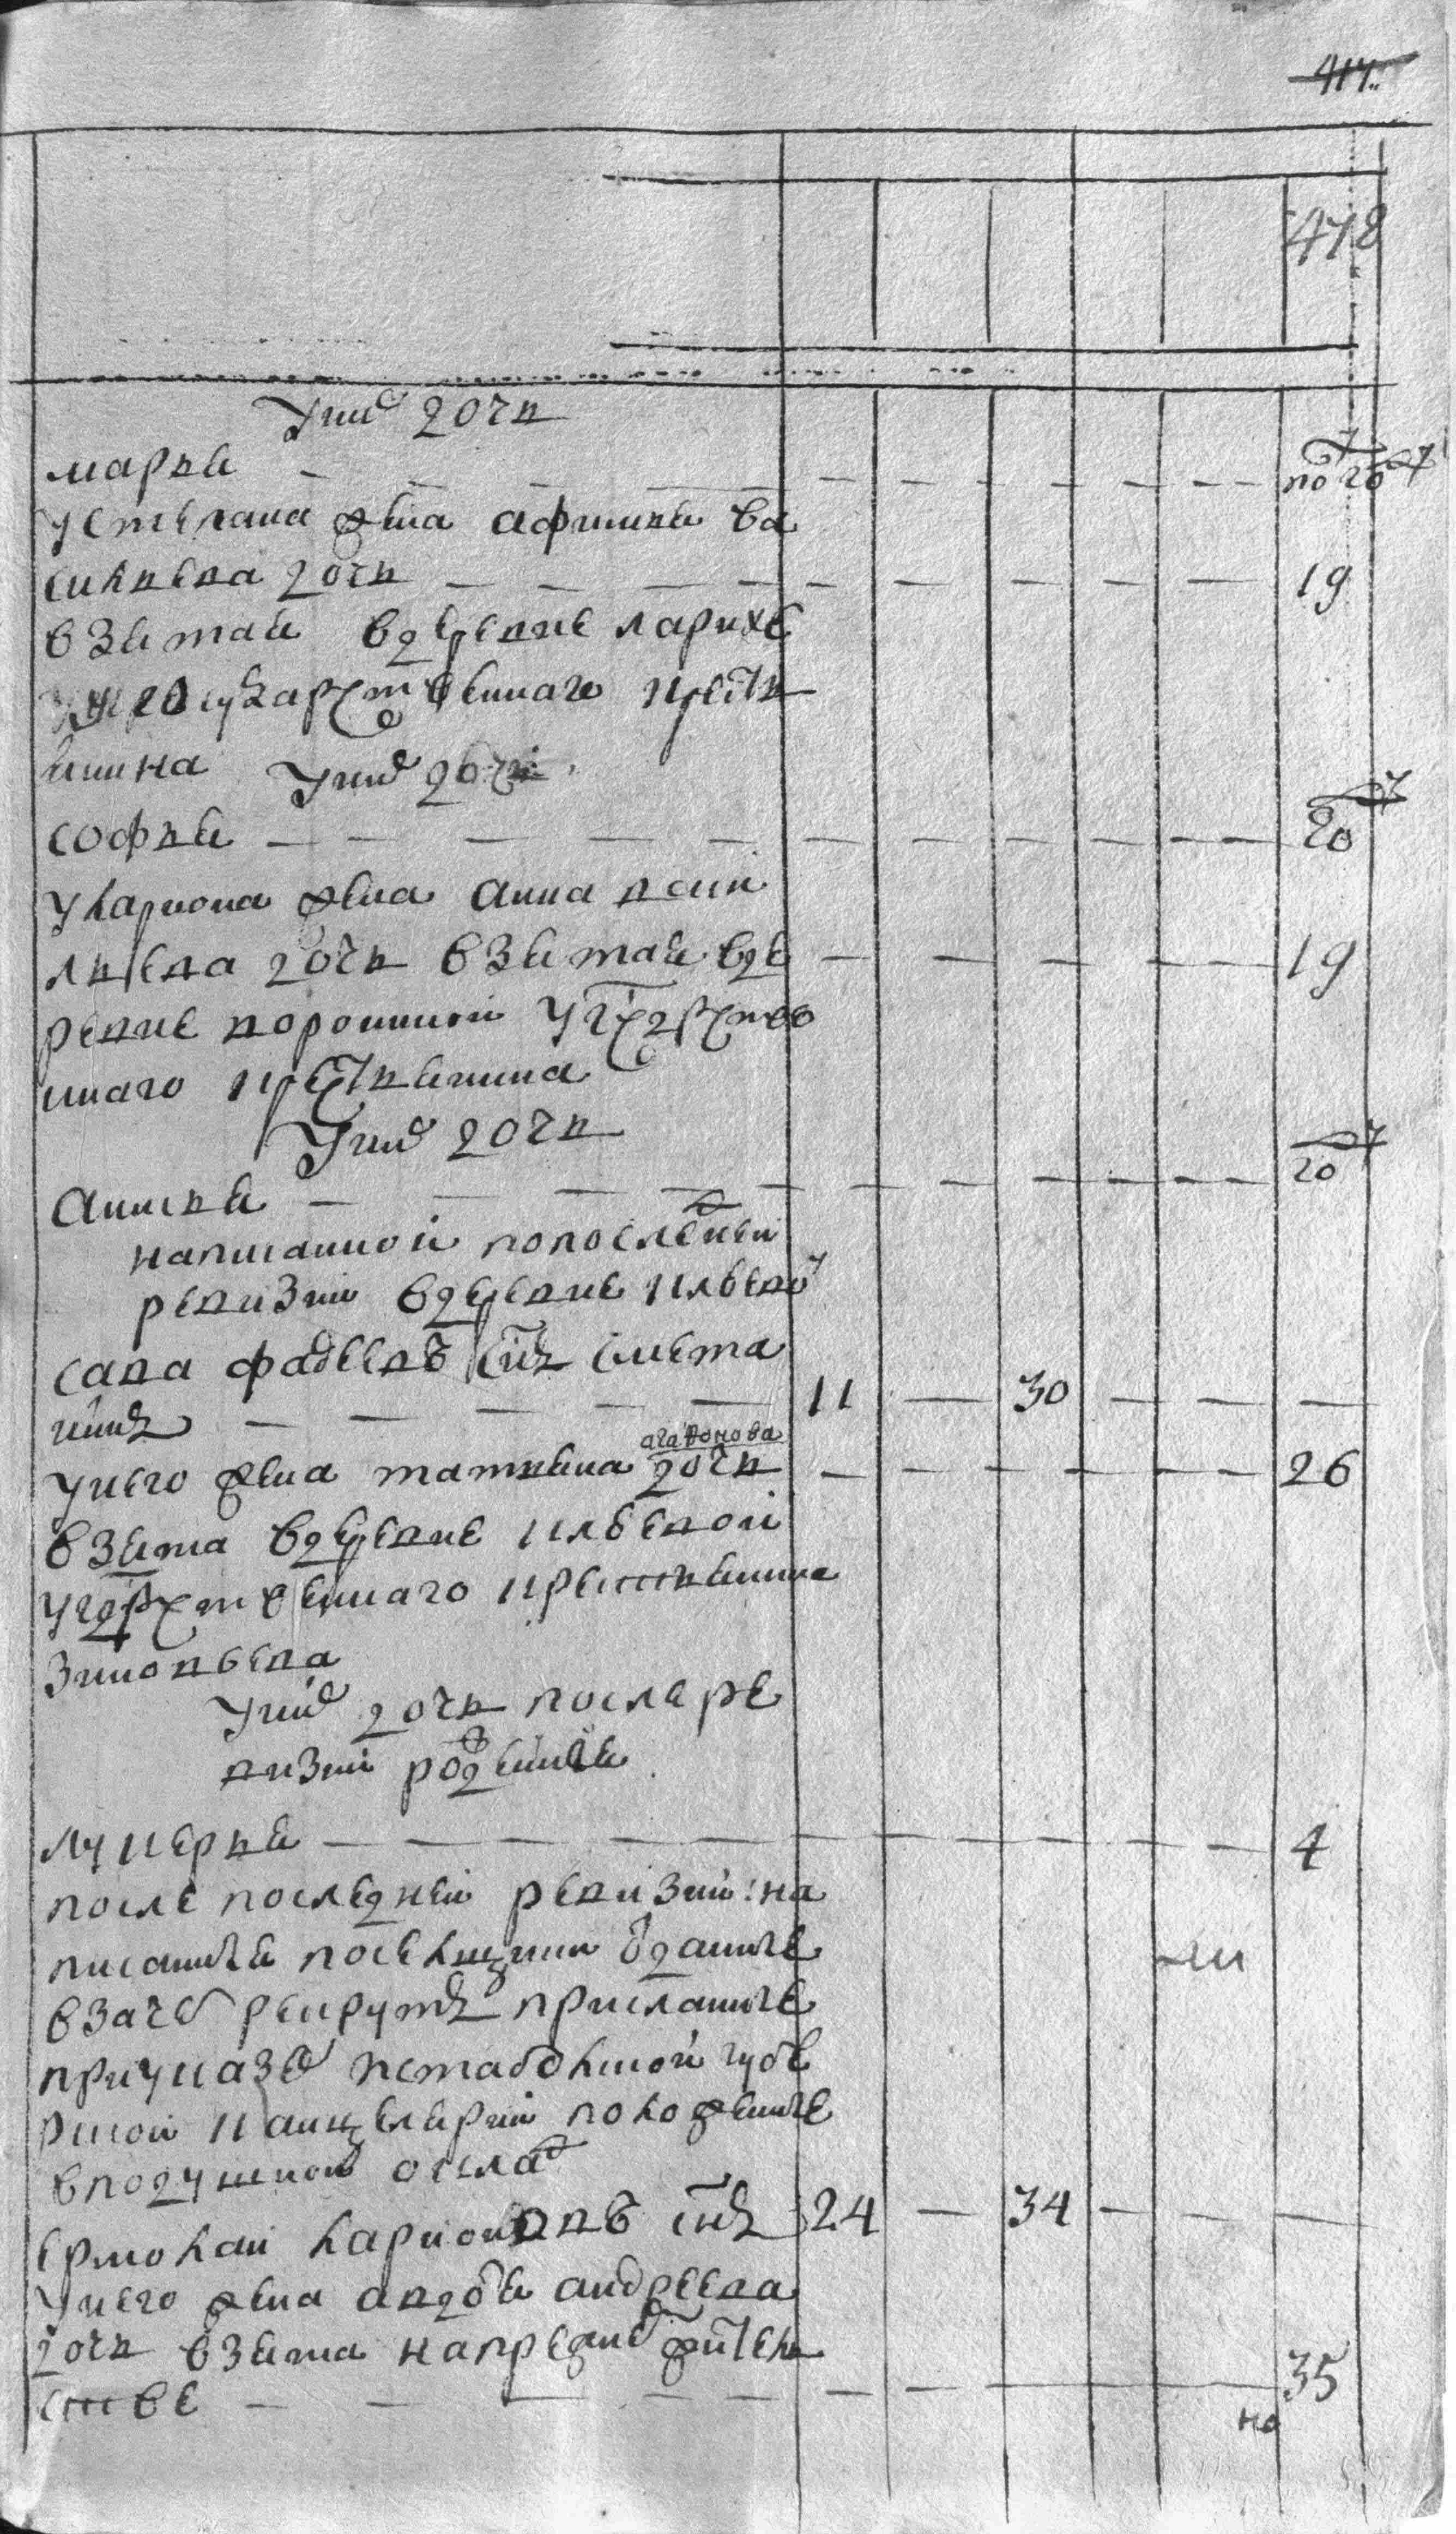 414
478
У них дочь
марья по году
У степана жена афимья ва
сильева дочь 19
взятая в деревне ларихе
у государственнаго кресть
янина У них дочь
софья год
У лариона жена анна васи
льева дочь взятая в де 19
ревне ворониной у государстве
ннаго крестьянина
У них дочь
анисья год
написанной по последней
ревизии в деревне ильевой
сава фадеевъ снъ смета
нинъ 11 30
агафонова
У него жена татьяна дочь 26
взята в деревне ильевой
у государственнаго крестьянина
зиновьева
У них дочь после ре
визии рожденная
лукерья 4
после последней ревизии на
писанные посельщики отданные
в зачет рекрутъ присланные
при указе тобольской губе
рнской канцелярии положенные
в подушной окладъ
ермолай ларионовъ снъ 24 34
У него жена авдотья андреева
дочь взята на прежнемъ жительстве
стве 35